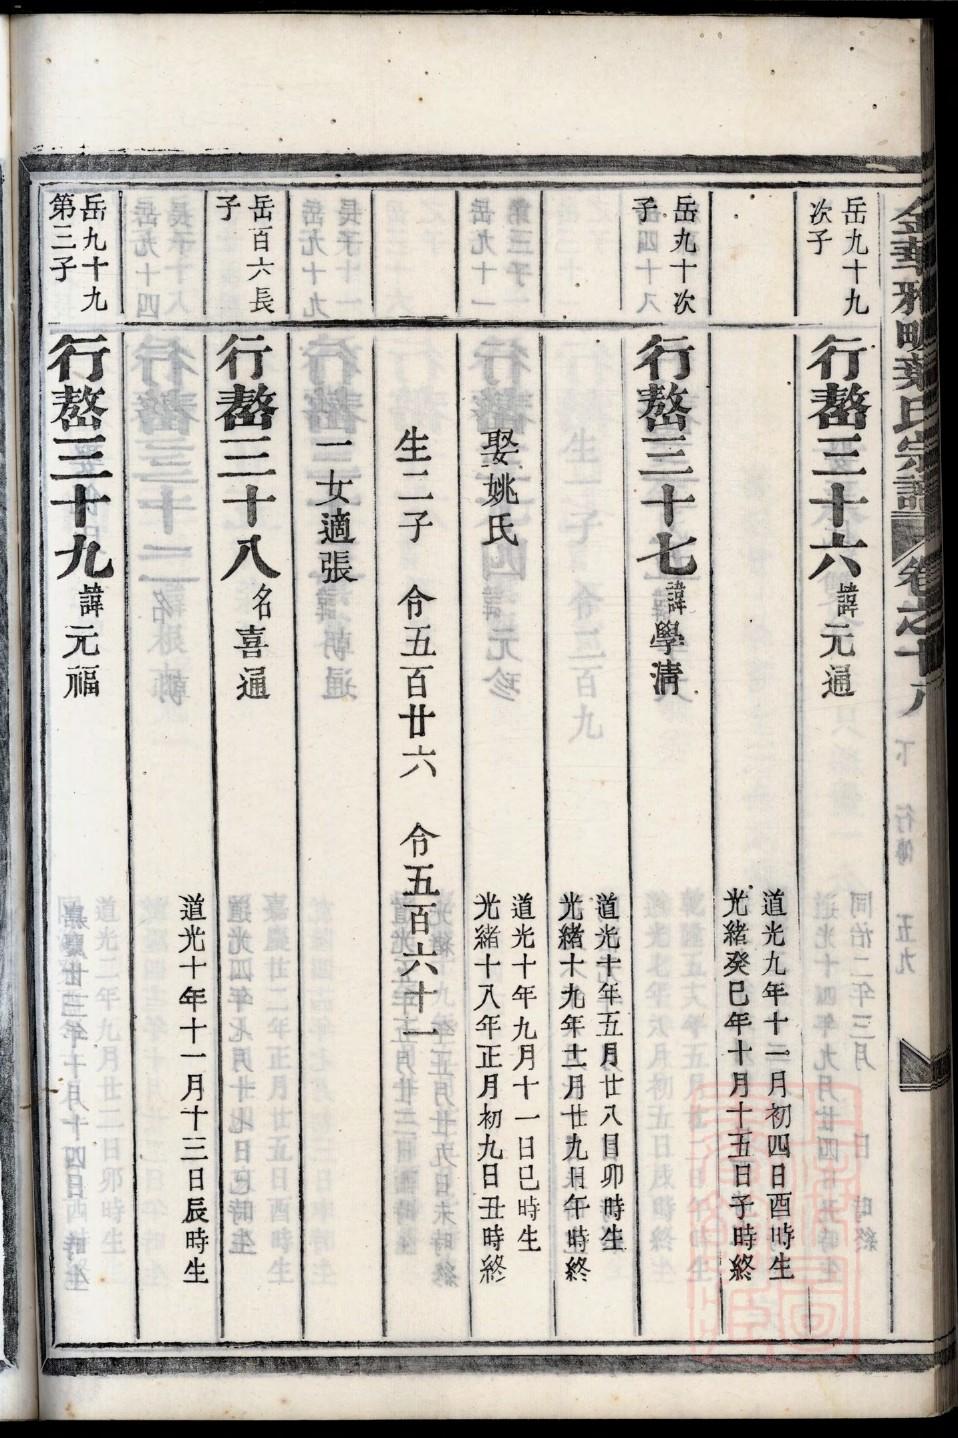 金華雅畈葉氏宗譜 卷之十八 下 行傳 五九
岳九十九
次子
行嶅三十六 諱元通
道光九年十二月初四日酉時生
光緒癸巳年十月十五日子時終
岳九十次
子
行嶅三十七 諱學淸
道光十年五月廿八日卯時生
光緒十九年十二月廿九日午時終
娶姚氏
道光十年九月十一日巳時生
光緒十八年正月初九日丑時終
生二子 令五百廿六 令五百六十一
一女適張
岳百六長
子
行嶅三十八 名喜通
道光十年十一月十三日辰時生
岳九十九
第三子
行嶅三十九 諱元福